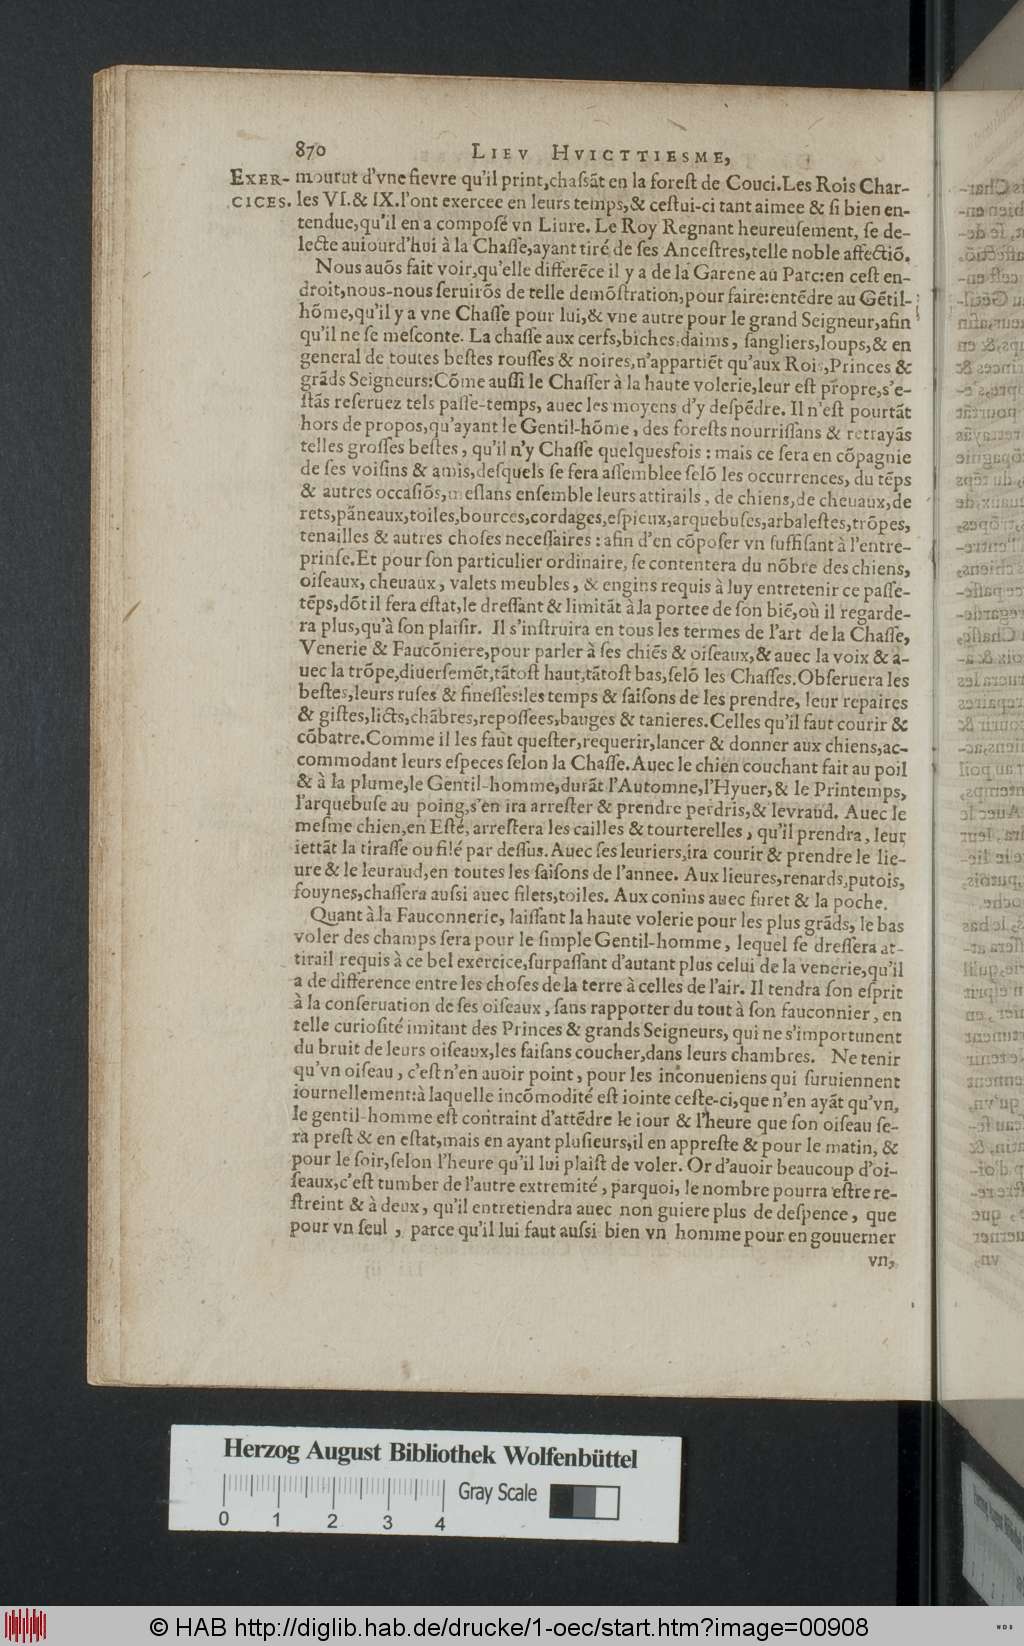 870 LIEV HVICTTIESME,
EXER- mourut d'vne fievre qu'il print,chaſsāt en la foreſt de Couci.Les Rois Char-
CICES. les VI.& IX.l'ont exercee en leurs temps,& ceſtui-ci tant aimee & ſi bien en-
tendue,qu'il en a compoſé vn Liure. Le Roy Regnant heureuſement, ſe de-
lecte auiourd'hui à la Chaſſe,ayant tiré de ſes Anceſtres,telle noble affectiō.
Nous auōs fait voir,qu'elle differēce il y a de la Garene au Parc:en ceſt en-
droit,nous-nous ſeruirōs de telle demōſtration,pour faire:entēdre au Gētil-
hōme,qu'il y a vne Chaſſe pour lui,& vne autre pour le grand Seigneur,afin
qu'il ne ſe meſconte. La chaſſe aux cerfs,biches,daims, ſangliers,loups,& en
general de toutes beſtes rouſſes & noires,n'appartiēt qu'aux Rois,Princes &
grāds Seigneurs:Cōme auſſi le Chaſſer à la haute volerie,leur eſt propre,s'e-
ſtās reſeruez tels paſſe-temps, auec les moyens d'y deſpēdre. Il n'eſt pourtāt
hors de propos,qu'ayant le Gentil-hōme, des foreſts nourriſſans & retrayās
telles groſſes beſtes, qu'il n'y Chaſſe quelquesfois : mais ce ſera en cōpagnie
de ſes voiſins & amis,deſquels ſe fera aſſemblee ſelō les occurrences, du tēps
& autres occaſiōs,meſlans enſemble leurs attirails, de chiens,de cheuaux,de
rets,pāneaux,toiles,bources,cordages,eſpieux,arquebuſes,arbaleſtes,trōpes,
tenailles & autres choſes neceſſaires : afin d'en cōpoſer vn ſuffiſant à l'entre-
prinſe.Et pour ſon particulier ordinaire, ſe contentera du nōbre des chiens,
oiſeaux, cheuaux, valets meubles, & engins requis à luy entretenir ce paſſe-
tēps,dōt il fera eſtat,le dreſſant & limitāt à la portee de ſon biē,où il regarde-
ra plus,qu'à ſon plaiſir. Il s'inſtruira en tous les termes de l'art de la Chaſſe,
Venerie & Faucōniere,pour parler à ſes chiēs & oiſeaux,& auec la voix & a-
uec la trōpe,diuerſemēt,tātoſt haut,tātoſt bas,ſelō les Chaſſes.Obſeruera les
beſtes,leurs ruſes & fineſſes:les temps & ſaiſons de les prendre, leur repaires
& giſtes,licts,chābres,repoſſees,bauges & tanieres.Celles qu'il faut courir &
cōbatre.Comme il les faut queſter,requerir,lancer & donner aux chiens,ac-
commodant leurs eſpeces ſelon la Chaſſe. Auec le chien couchant fait au poil
& à la plume,le Gentil-homme,durāt l'Automne,l'Hyuer,& le Printemps,
l'arquebuſe au poing,s'en ira arreſter & prendre perdris,& levraud. Auec le
meſme chien,en Eſté,arreſtera les cailles & tourterelles, qu'il prendra, leur
iettāt la tiraſſe ou filé par deſſus. Auec ſes leuriers,ira courir & prendre le lie-
ure & le leuraud,en toutes les ſaiſons de l'annee. Aux lieures,renards,putois,
fouynes,chaſſera auſsi auec filets,toiles. Aux conins auec furet & la poche.
Quant à la Fauconnerie, laiſſant la haute volerie pour les plus grāds, le bas
voler des champs ſera pour le ſimple Gentil-homme, lequel ſe dreſſera at-
tirail requis à ce bel exercice,ſurpaſſant d'autant plus celui de la venerie,qu'il
a de difference entre les choſes de la terre à celles de l'air. Il tendra ſon eſprit
à la conſeruation de ſes oiſeaux, ſans rapporter du tout à ſon fauconnier, en
telle curioſité imitant des Princes & grands Seigneurs, qui ne s'importunent
du bruit de leurs oiſeaux,les faiſans coucher,dans leurs chambres. Ne tenir
qu'vn oiſeau, c'eſt n'en auoir point, pour les inconueniens qui ſuruiennent
iournellement:à laquelle incōmodité eſt iointe ceſte-ci,que n'en ayāt qu'vn,
le gentil-homme eſt contraint d'attēdre le iour & l'heure que ſon oiſeau ſe-
ra preſt & en eſtat,mais en ayant pluſieurs,il en appreſte & pour le matin, &
pour le ſoir,ſelon l'heure qu'il lui plaiſt de voler. Or d'auoir beaucoup d'oi-
ſeaux,c'eſt tumber de l'autre extremité, parquoi, le nombre pourra eſtre re-
ſtreint & à deux, qu'il entretiendra auec non guiere plus de deſpence, que
pour vn ſeul, parce qu'il lui faut auſsi bien vn homme pour en gouuerner
vn,
Herzog August Bibliothek Wolfenbüttel
Gray Scale
0 1 2 3 4
© HAB http://diglib.hab.de/drucke/1-oec/start.htm?image=00908